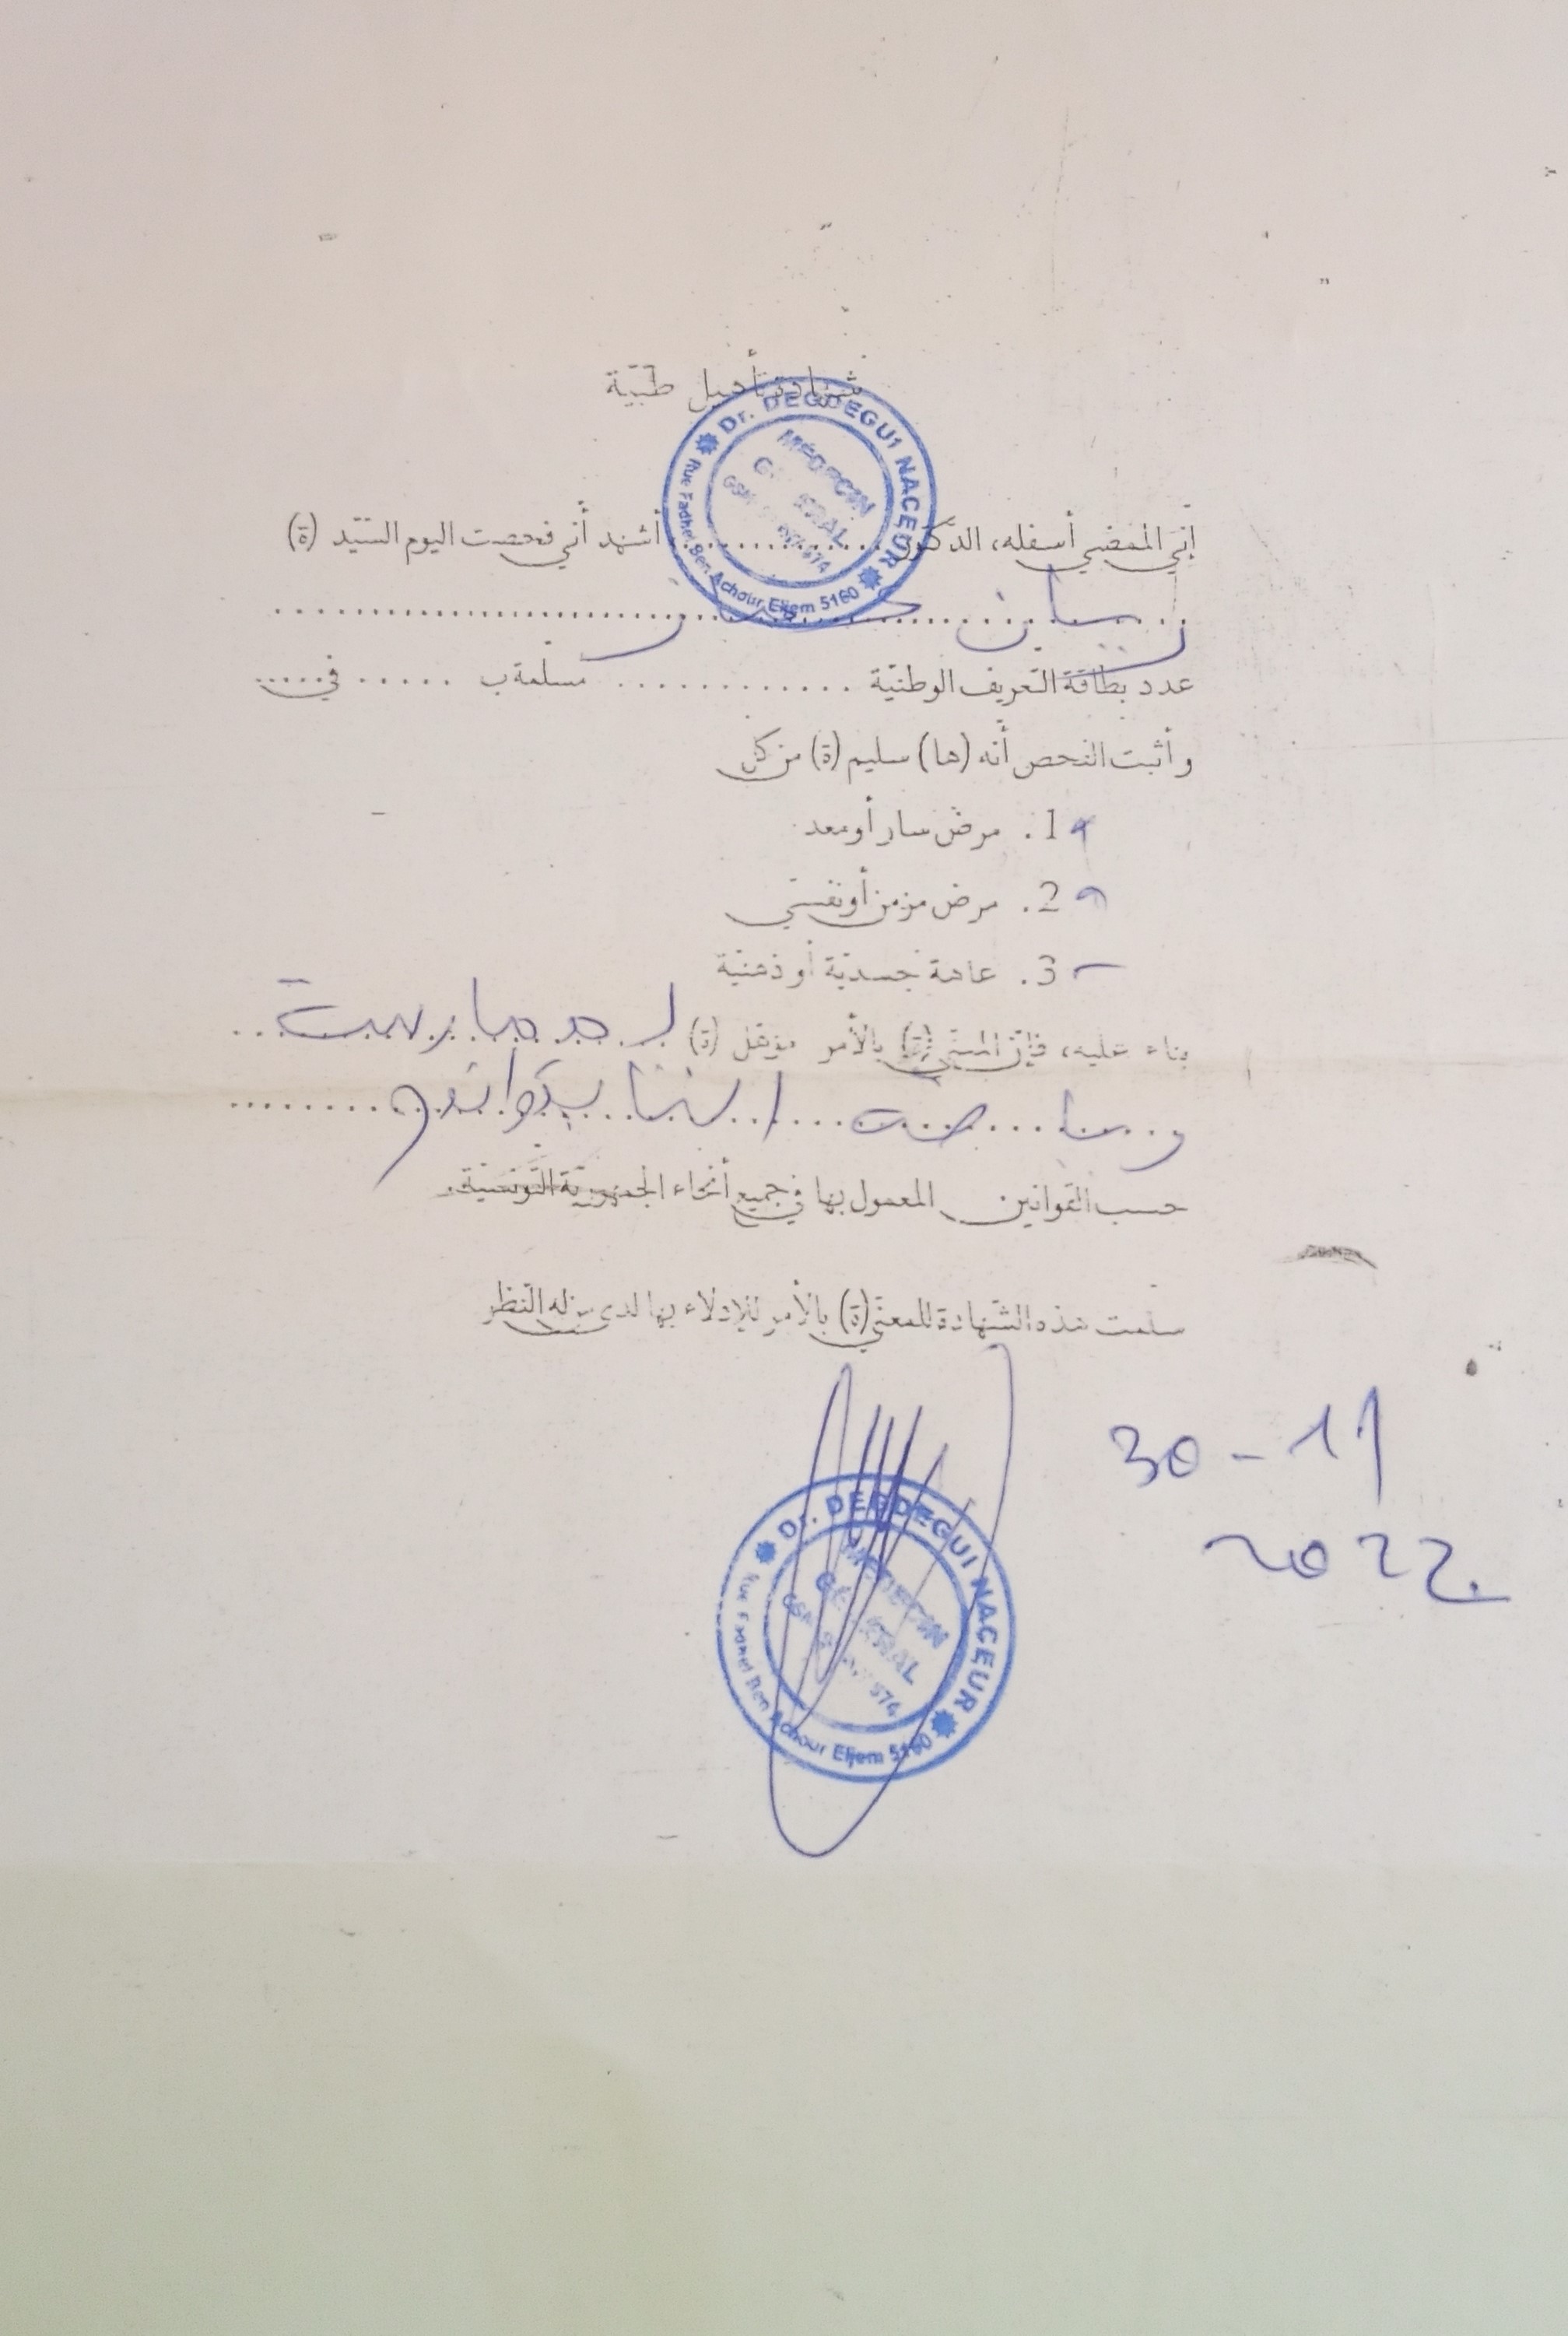 شهادة تأهيل طبّية
Dr. DEGDEGUI NACEUR
MEDECIN
GSM
Rue Fadhel Ben Achour Eljem 5160
إنّي الممضي أسفله، الدكتور .............. أشهد أنّي فحصت اليوم السّيّد (ة)
عدد بطاقة التّعريف الوطنيّة ............. مسلمة ب ...... في .....
وأثبت الفحص أنّه (ها) سليم (ة) من كلّ
1. مرض سار أو معد
2. مرض مزمن أو نفسيّ
3. عاهة جسديّة أو ذهنيّة
بناء عليه، فإنّ المعنيّ (ة) بالأمر مؤهّل (ة)
رياضة
حسب القوانين المعمول بها في جميع أنحاء الجمهوريّة التّونسيّة.
سلمت هذه الشّهادة للمعنيّ (ة) بالأمر للإدلاء بها لدى من له النّظر
30-11
2022
Dr. DEGDEGUI NACEUR
MEDECIN
Achour Eljem 5160